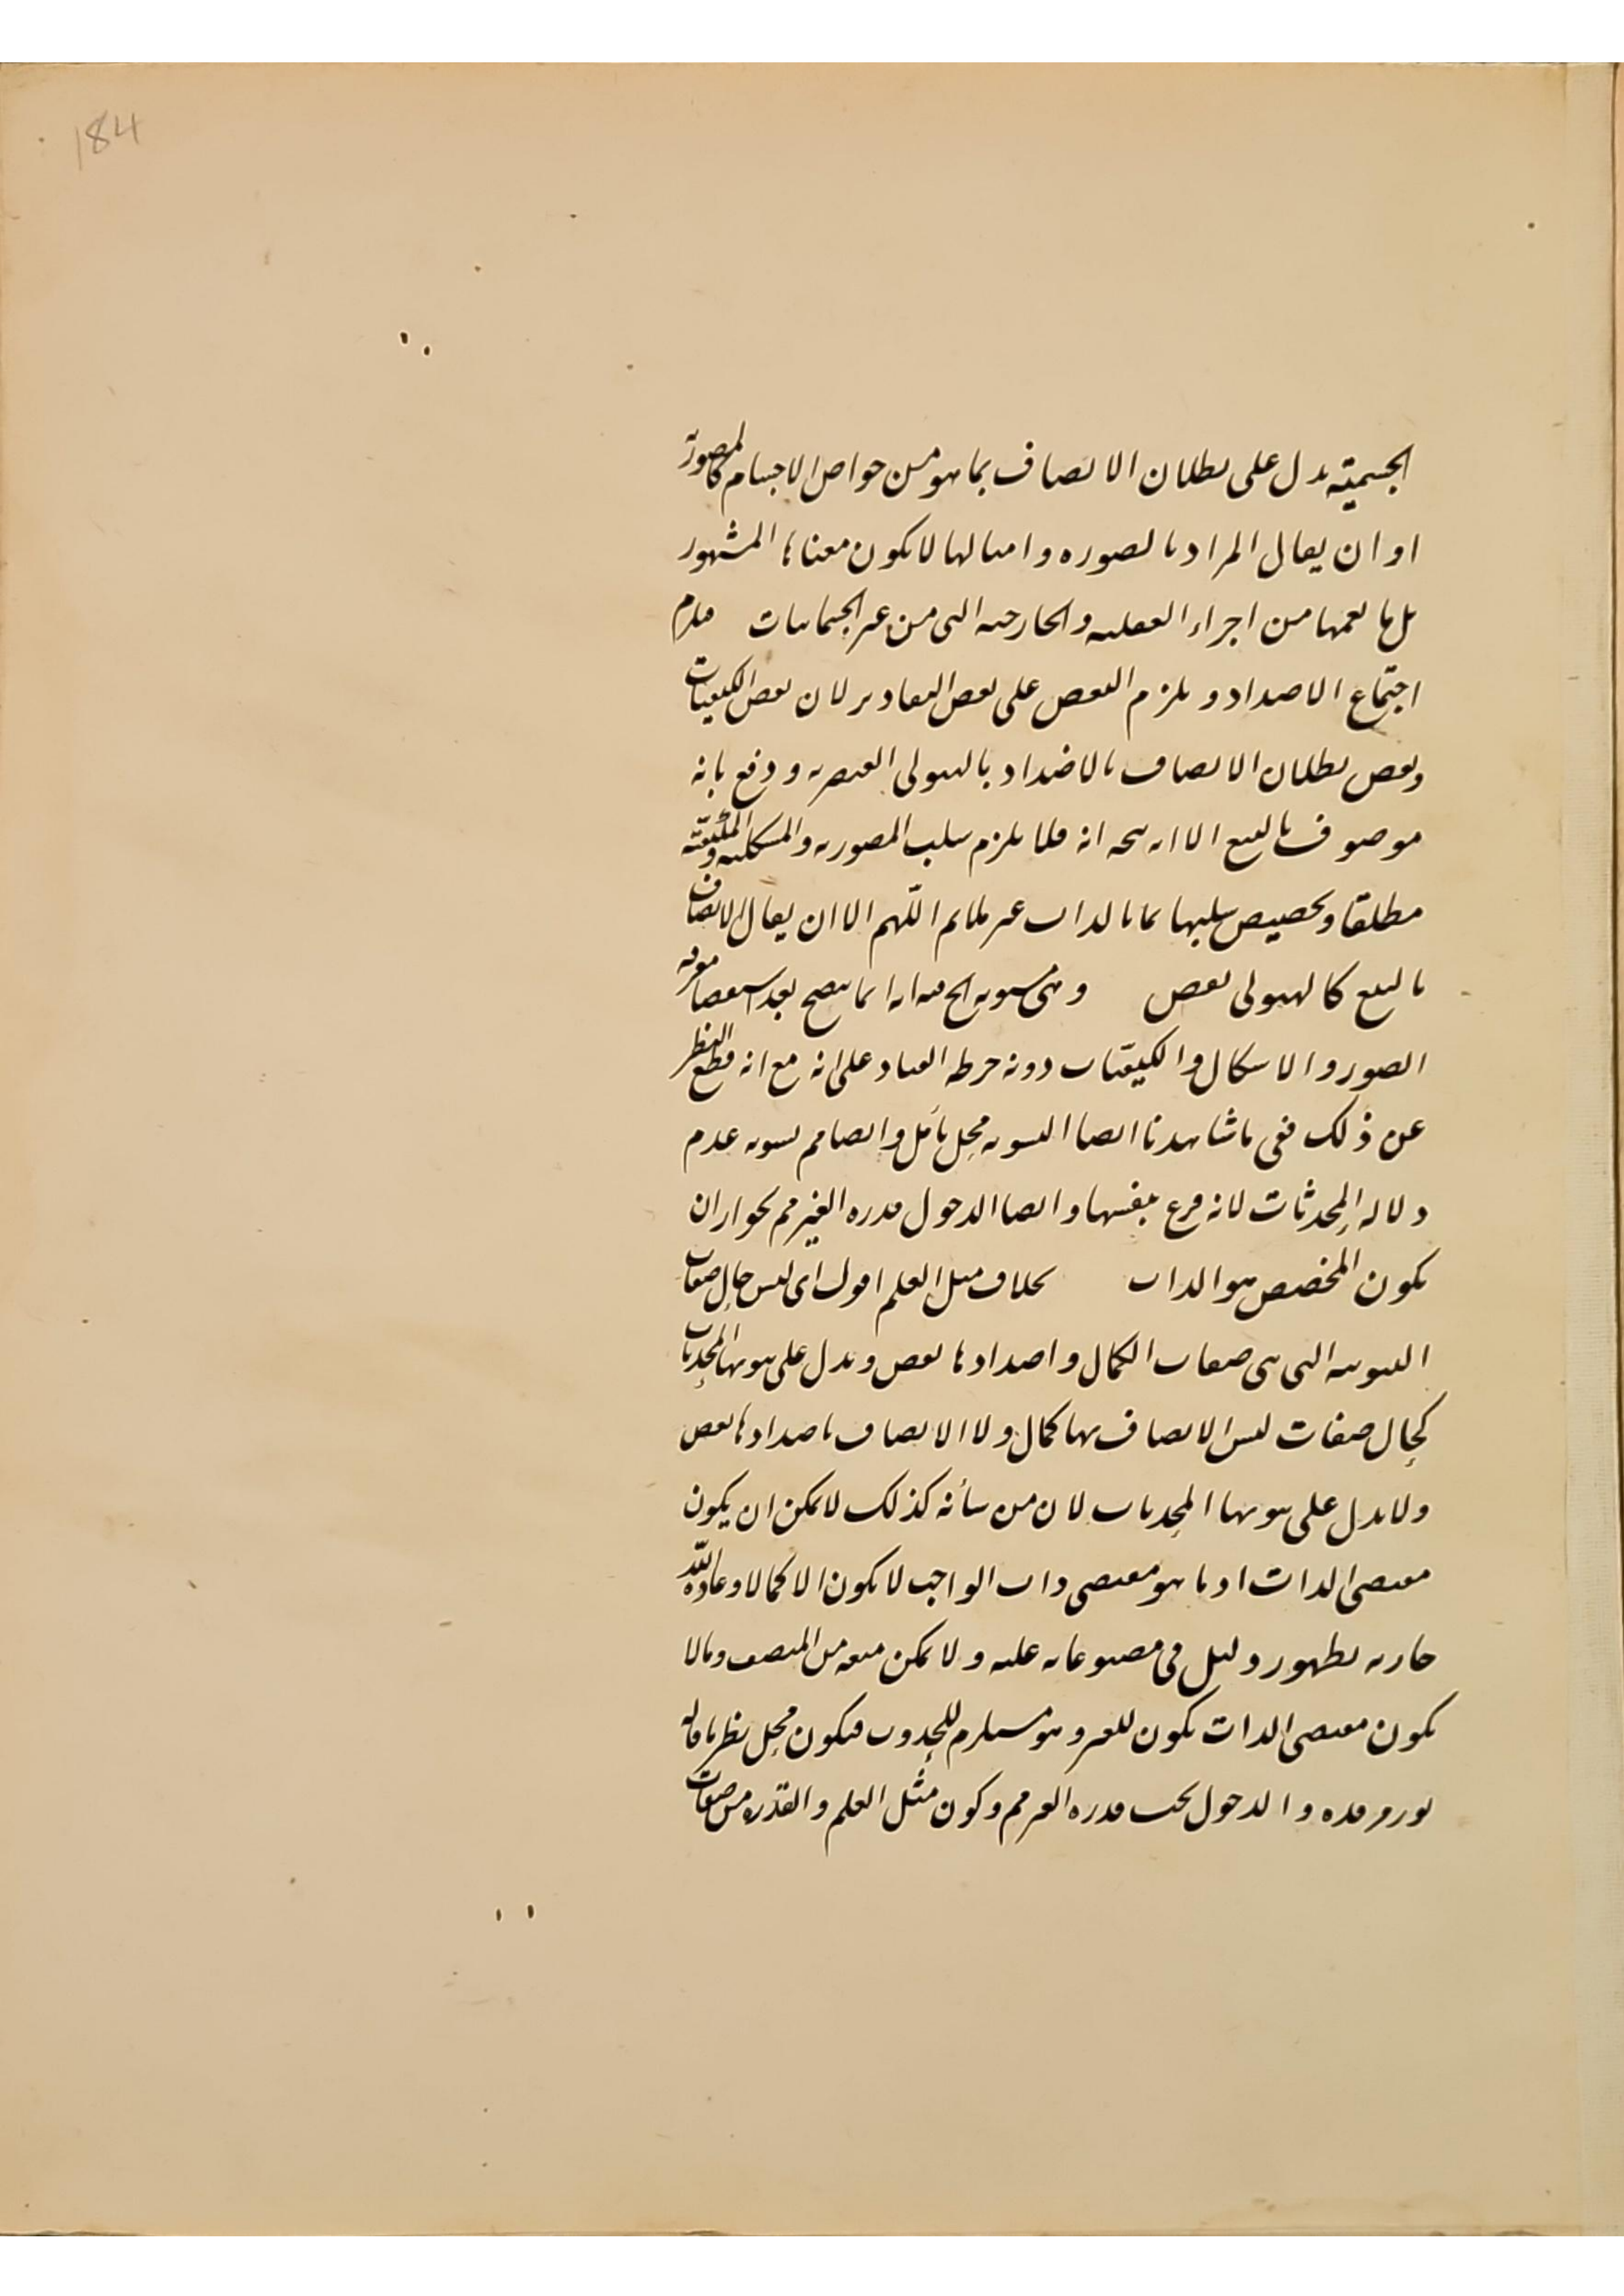 184
الجسمية يدل على بطلان الاتصاف بما هو من خواص الاجسام كالمصورية
او ان يقال المراد بالصوره وامثالها لا يكون معناها المشهور
بل ما يعمها من اجزاء العقليه والخارجيه التى من غير الجسمانيات فيلزم
اجتماع الاضداد ويلزم النقص على بعض التقادير لان بعض الكيفيات
ونقض بطلان الاتصاف بالاضداد بالهيولى العنصريه ودفع بانه
موصوف بالتبع الا انه يتجه انه فلا يلزم سلب المصوريه والمشكليه والمكيفية
مطلقا وتخصيص سلبها بما بالذات غير ملائم اللّهم الا ان يقال الاتصاف
بالتبع كالهيولى نقص وهى مستويه الخ فيه انه انما يتضح بعد استقصاء معرفه
الصور والاشكال والكيفيّات دونه خرط القتاد على انه مع انه قطع النظر
عن ذلك ففى ما شاهدنا ايضا التسويه محل تأمل وايضا مم تسويه عدم
دلاله المحدثات لانه فرع بنفسها وايضا الدخول قدره الغير مم لجواز ان
يكون المخصص هو الذات بخلاف مثل العلم اقول اى ليس حال صفات
الثبوتيه التى هى صفات الكمال واضدادها نقص ويدل على ثبوتها المحدثات
كحال صفات ليس الاتصاف بها كمال ولا الاتصاف باضدادها نقص
ولا يدل على ثبوتها المحدثات لان من شأنه كذلك لا يمكن ان يكون
مقتضى الذات اذ ما هو مقتضى ذات الواجب لا يكون الا كمالا وعادة اللّه
جاريه بظهور دليل فى مصنوعاته عليه ولا يمكن منعه من المنصف وما لا
يكون مقتضى الذات يكون للغير وهو مستلزم للحدوث فيكون محل نظر ما قاله
والدخول تحت قدره الغير مم وكون مثل العلم والقدره من صفات